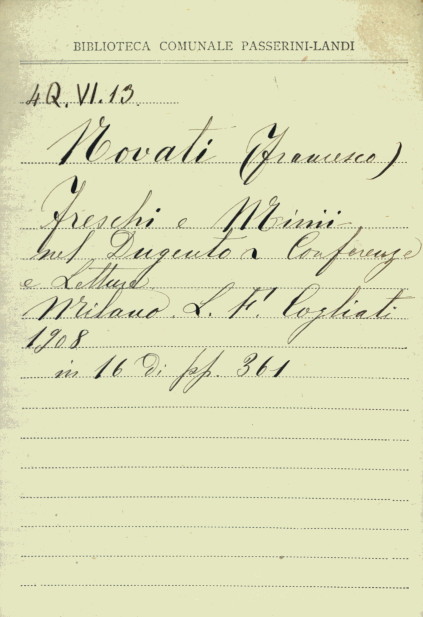 BIBLIOTECA COMUNALE PASSERINI-LANDI
4Q.VI.13
Novati (Francesco)
Freschi e Minii
nel Dugento Conferenze
e Letture
Milano. L. F. Cogliati
1908
in 16 di pp. 361